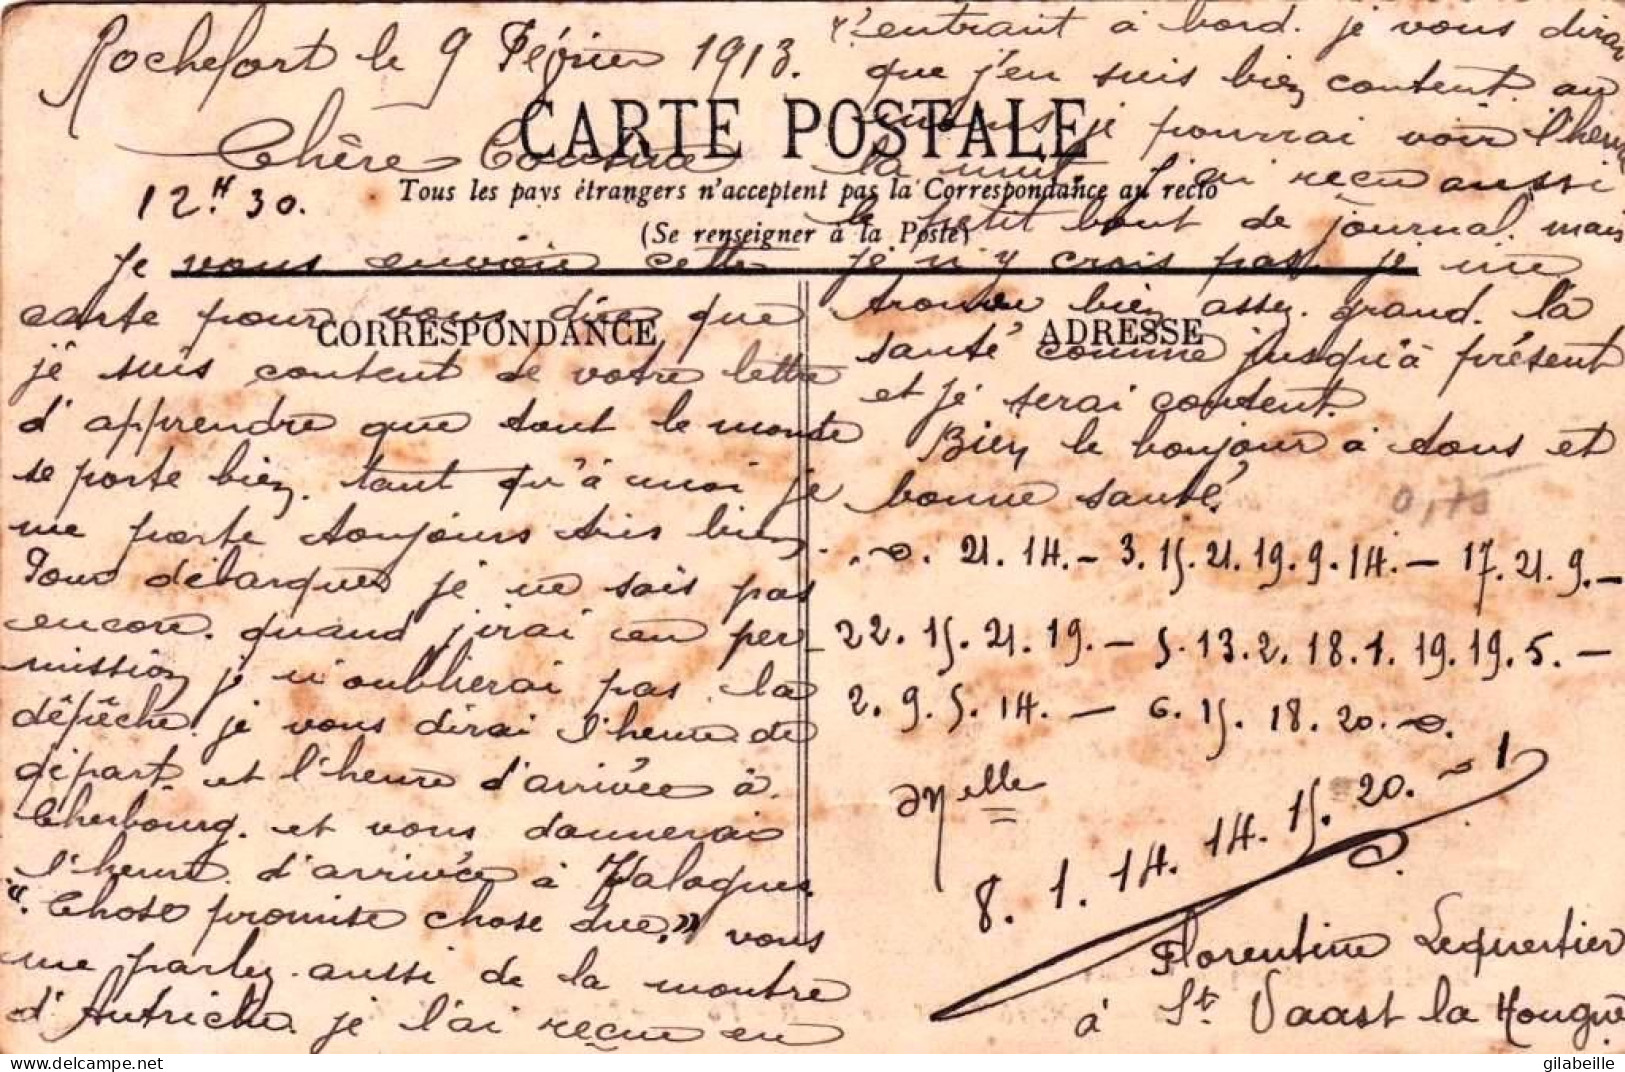 Rochefort le 9 Février 1913.
CARTE POSTALE
Chère Cousine
Tous les pays étrangers n'acceptent pas la Correspondance au recto
12.H 30.
(Se renseigner à la Poste)
Je vous envoie cette
CORRESPONDANCE
carte pour vous dire que
je suis content de votre lettre
d'apprendre que tout le monde
se porte bien. tant qu'à moi je
me porte toujours très bien.
Pour débarquer je ne sais pas
encore. quand j'irai en per-
mission je n'oublierai pas la
dépêche. je vous dirai l'heure de
départ. et l'heure d'arrivée à
Cherbourg. et vous donnerai
l'heure d'arrivée à Valognes.
"Chose promise chose due." vous
me parlez aussi de la montre
d'Autriche. je l'ai reçue en
r'entrant à bord. je vous dirai
que j'en suis bien content. au
moins je pourrai voir l'heure
la nuit. j'ai reçu aussi
le petit bout de journal. mais
je n'y crois pas. je me
trouve bien assez grand. la
ADRESSE
santé comme jusqu'à présent
et je serai content.
Bien le bonjour à tous et
bonne santé.
0,75
21. 14. – 3. 15. 21. 19. 9. 14. – 17. 21. 9. –
22. 15. 21. 19. – 5. 13. 2. 18. 1. 19. 19. 5. –
2. 9. 5. 14. – 6. 15. 18. 20.
Melle
8. 1. 14. 14. 15. 20. - 1
Florentine Lequertier
à St. Vaast la Hougue
gilabeille